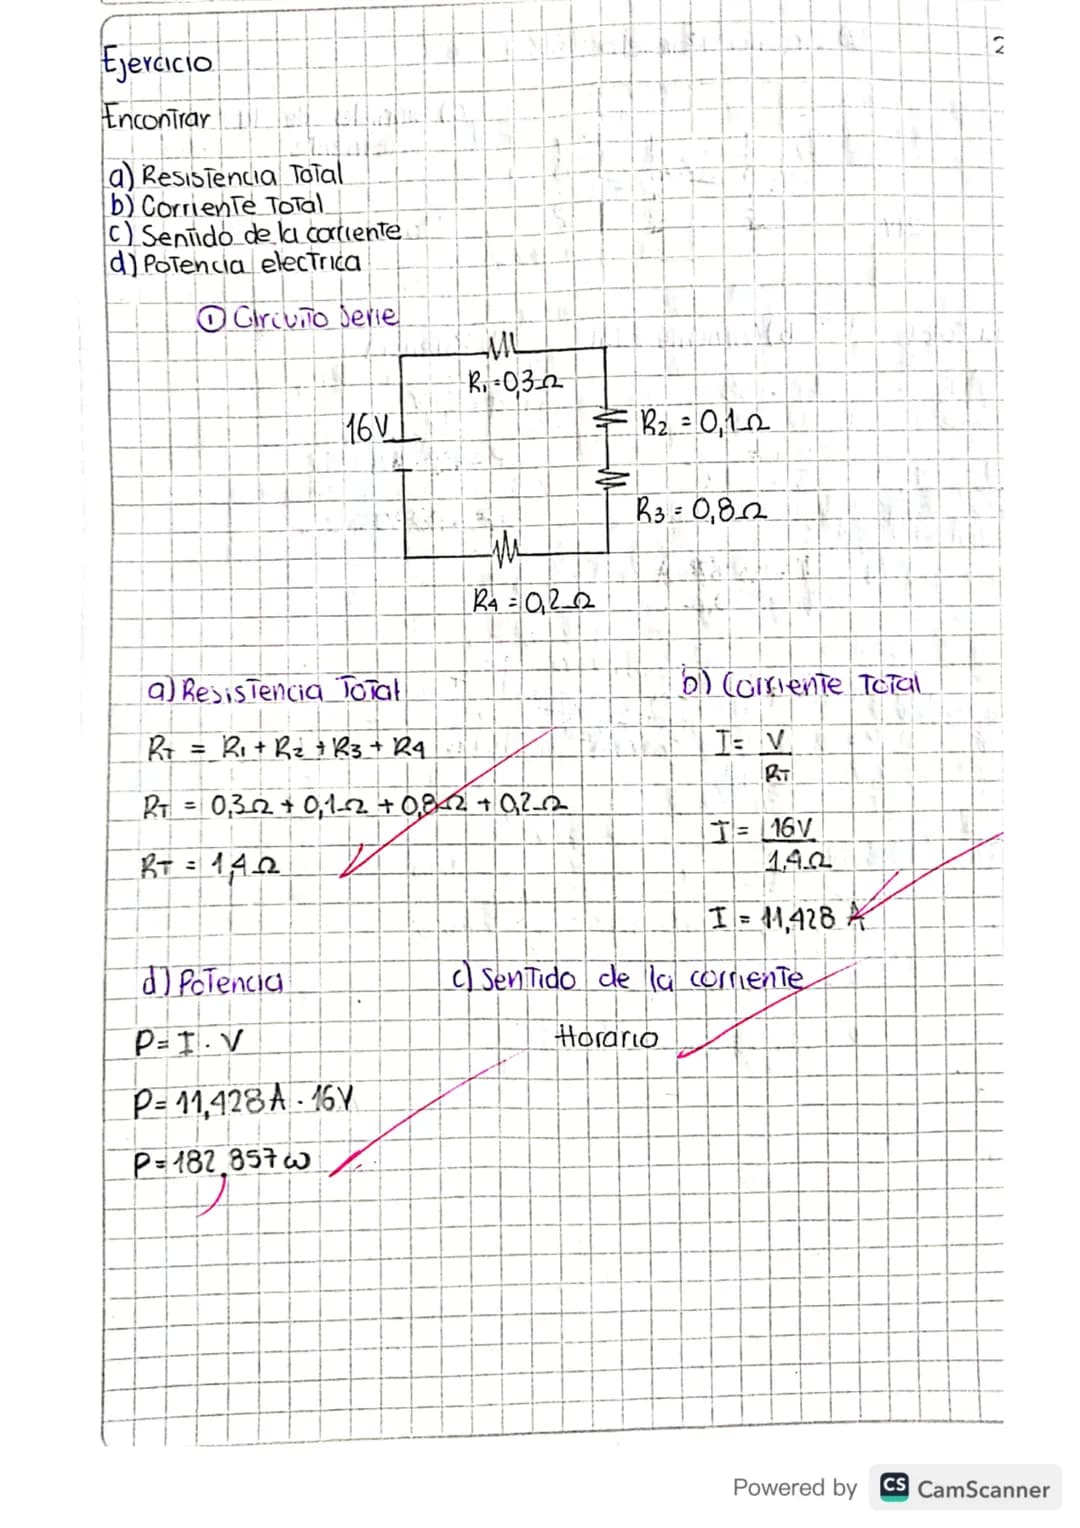 2
Ejercicio
Encontrar
a) Resistencia Total
b) Corriente Total
c) Sentido de la corriente
d) Potencia electrica
① Circuito Serie
R₁=0,3Ω
16V
R2 = 0,1Ω
R3 = 0,8Ω
R4 = 0,2Ω
a) Resistencia Total
RT = R1 + R2 + R3 + R4
RT = 0,3Ω + 0,1Ω + 0,8Ω + 0,2Ω
RT = 1,4Ω
b) Corriente Total
I = V
RT
I = 16V
1,4Ω
I = 11,428 A
d) Potencia
P= I . V
P= 11,428A . 16V
P= 182,857 w
c) Sentido de la corriente
Horario
Powered by CS CamScanner